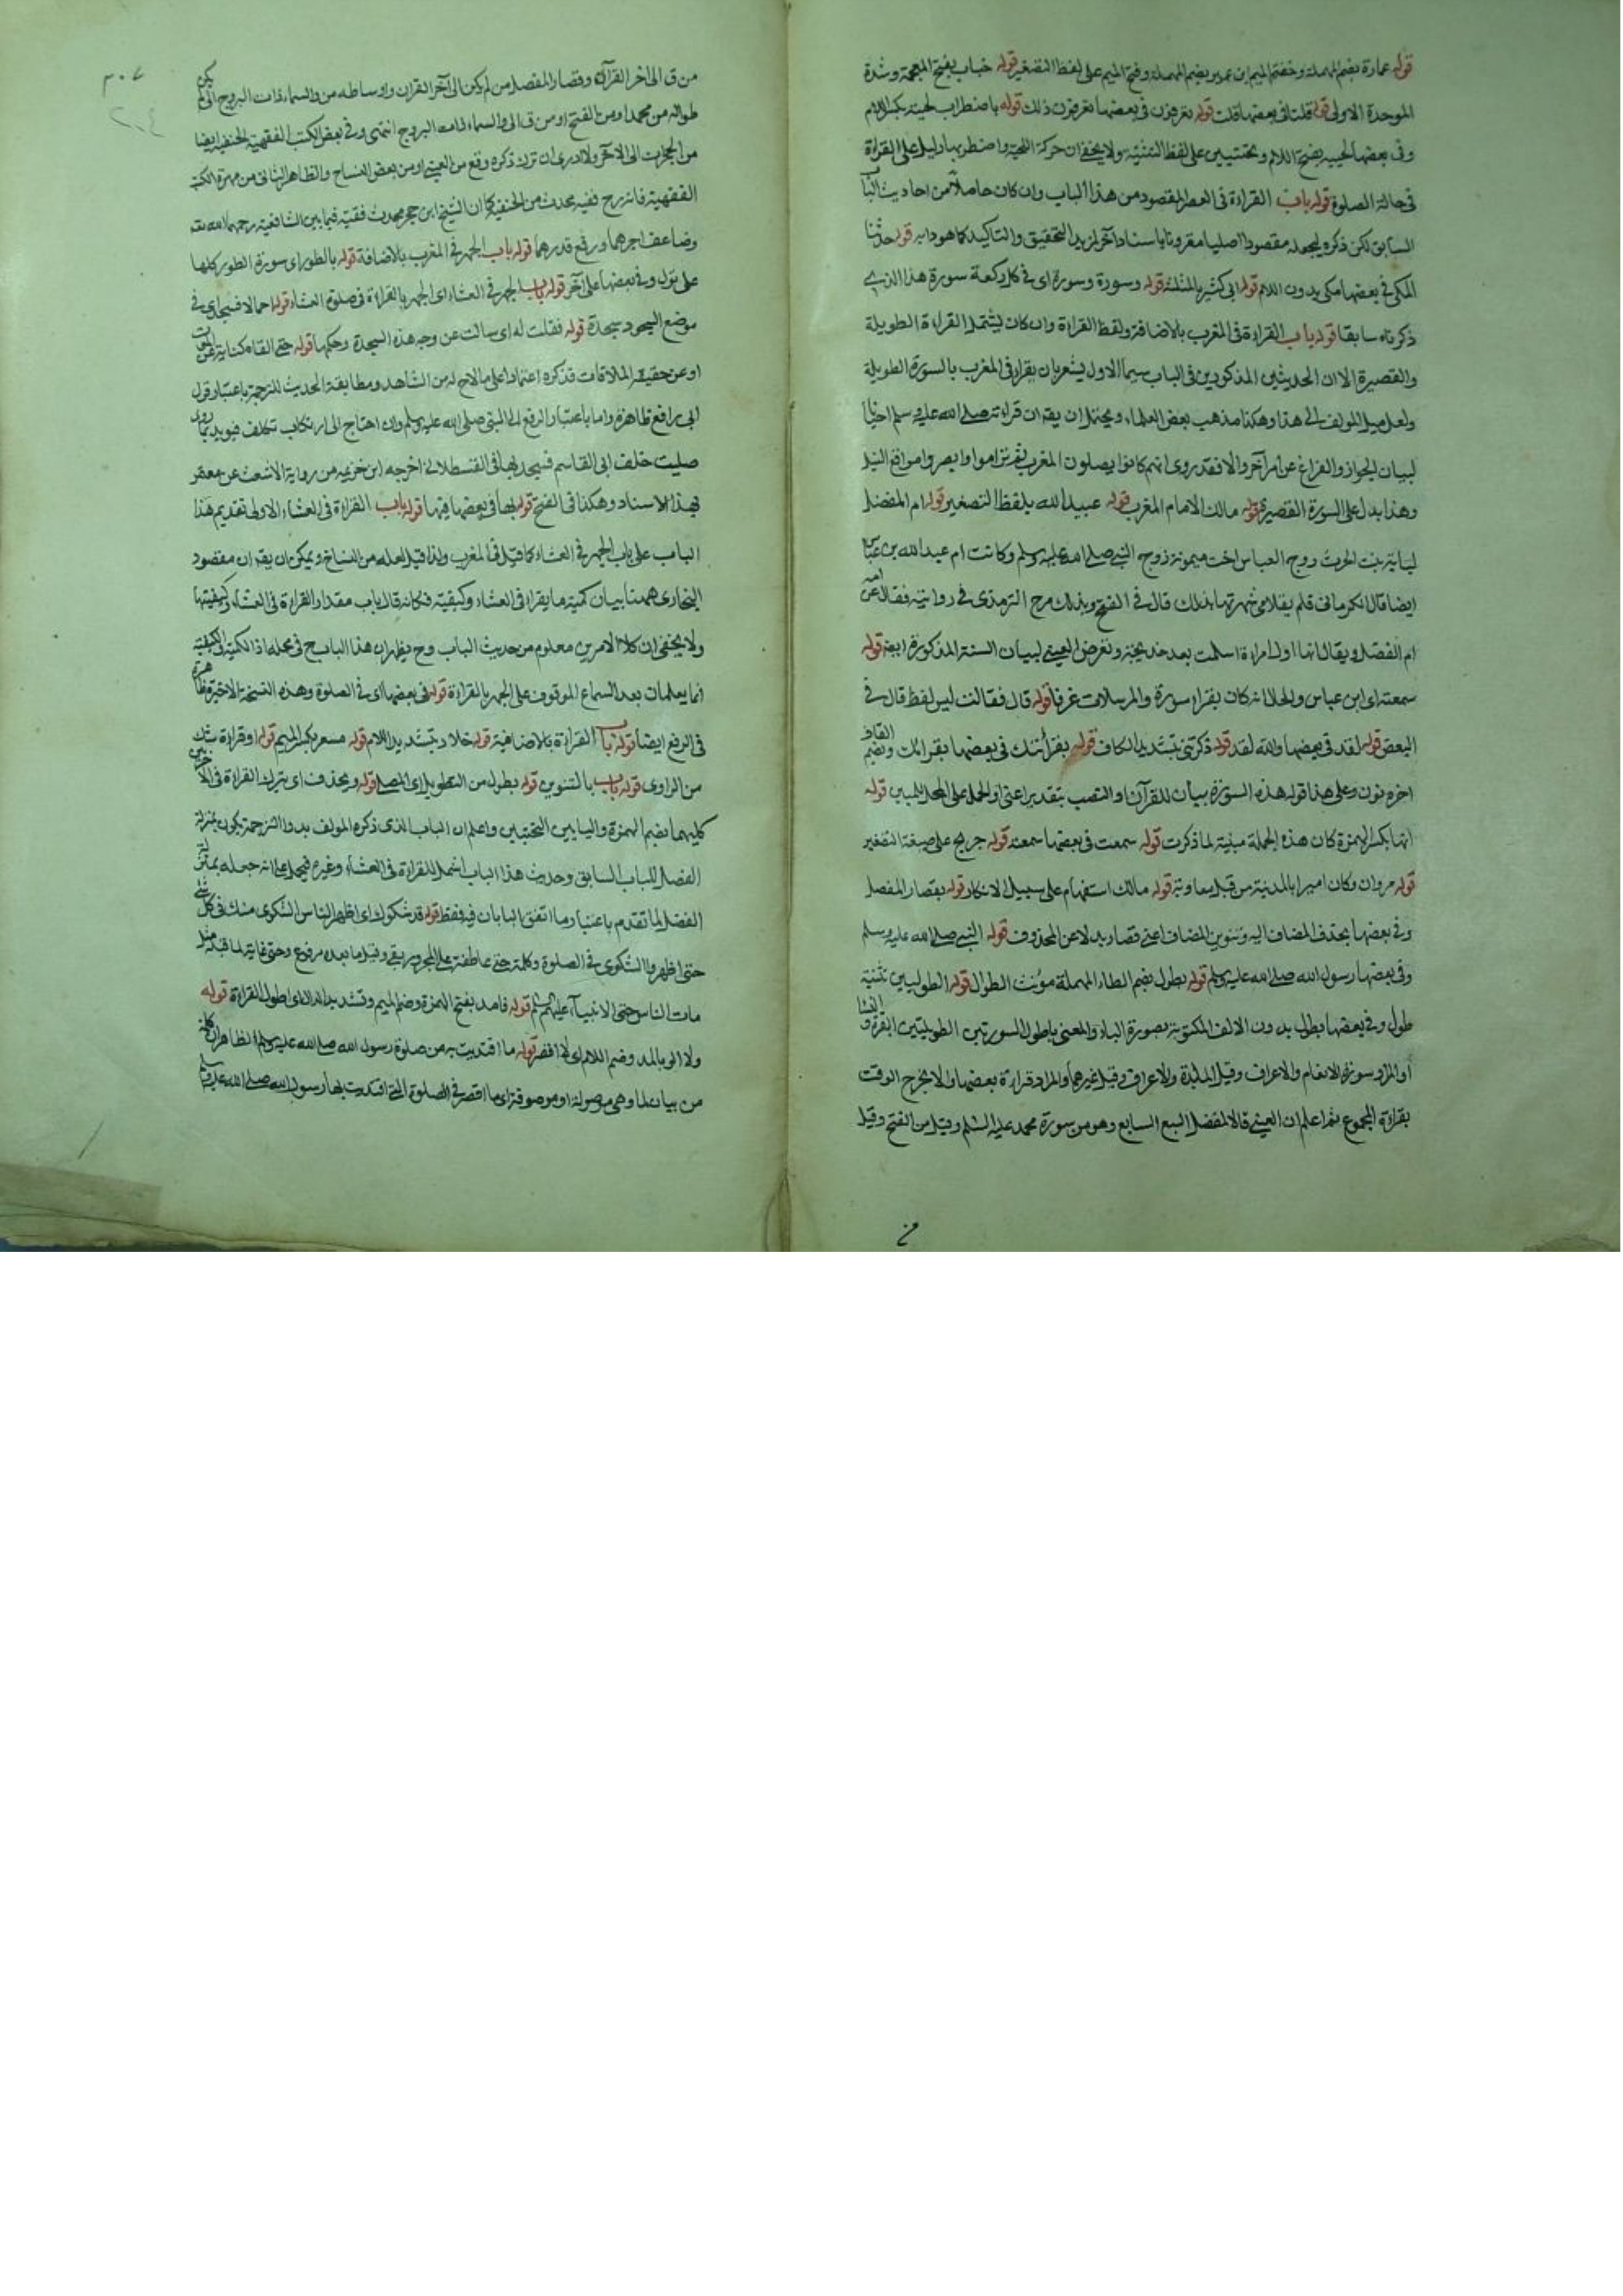 قوله عمارة بضم المهملة وخفة الميم ابن عمير بضم المهملة وفتح الميم على لفظ التصغير قوله خباب بفتح المعجمة وشدة
الموحدة الاولى قوله قلنا في بعضها قلت قوله تعرفون في بعضها تعرفون ذلك قوله باضطراب لحيته بكسر اللام
وفي بعضها لحييه بفتح اللام وتحتيتين على لفظ التثنية ولا يخفى ان حركة اللحية واضطرابها دليل على القراة
في حالة الصلوة قوله باب القراءة في العصر المقصود من هذا الباب وان كان حاصلا من احاديث الباب
السابق لكن ذكره ليجعله مقصودا اصليا مقرونا باسناد آخر لزيد التحقيق والتاكيد كما هو دابه قوله حدثنا
المكي في بعضها مكي بدون اللام قوله ابي كثير بالمثلثة قوله وسورة وسورة اى في كل ركعة سورة هذا الذي
ذكرناه سابقا قوله باب القراءة في المغرب بالاضافة ولفظ القراة وان كان يشتمل القراءة الطويلة
والقصيرة الا ان الحديثين المذكورين في الباب سيما الاول يشعر بان يقرا في المغرب بالسورة الطويلة
ولعل ميل المولف الى هذا وهكذا مذهب بعض العلماء ويحتمل ان يقه ان قراءته صلى الله عليه وسلم احيانا
لبيان الجواز والفراغ عن امر آخر والا فقد روى انهم كانوا يصلون المغرب ثم تراموا وابصروا مواقع النبل
وهذا يدل على السورة القصيرة قوله مالك الامام المغرب قوله عبيد الله بلفظ التصغير قوله ام الفضل
لبابة بنت الحرث زوج العباس اخت ميمونة زوج النبي صلى الله عليه وسلم وكانت ام عبد الله بن عباس
ايضا قال الكرماني قلم يقل امي لشهرتها بذلك قال في الفتح وبذلك صرح الترمذى في روايته فقال عن امه
ام الفضل ويقال انها اول امراءة اسلمت بعد خديجة وتعرض العيني لبيان السنة المذكورة ايضا قوله
سمعته اى ابن عباس والحال انه كان يقراء سورة والمرسلات عرفا قوله قال فقالت ليس لفظ قال في
البعض قوله لقد في بعضها والله لقد قوله ذكرتني بتشديد الكاف قوله بقرأتك في بعضها بقرائك وبضم القاف
اخره نون وعلى هذا قوله هذه السورة بيان للقرآن او النصب بتقدير اعني او الحمل على المحل قوله
انها بكسر الهمزة كان هذه الجملة مبنية لما ذكرت قوله سمعت في بعضها سمعته قوله جريج على صيغة التصغير
قوله مروان وكان اميرا بالمدينة من قبل معاوية قوله مالك استفهام على سبيل الانكار قوله بقصار المفصل
وفي بعضها بحذف المضاف اليه وتنوين المضاف اعني قصار بدلا عن المحذوف قوله النبي صلى الله عليه وسلم
وفي بعضها رسول الله صلى الله عليه وسلم قوله بطول بضم الطاء المهملة مؤنث الطوال قوله الطوليين تثنية
طول وفي بعضها بطول بدون الالف المكتوبة بصورة الياء والمعنى باطول السورتين الطويلتين البقرة و النساء
أو المراد سورة الانعام والاعراف وقيل المائدة والاعراف وقيل غيرهما والمراد قراءة بعضها والا يخرج الوقت
بقراءة المجموع ثم اعلم ان العيني قال المفصل السبع السابع وهو من سورة محمد عليه السلم وقيل من الفتح وقيل
من
٣٠٧
٢٠٤
من ق الى اخر القرآن وقصار المفصل من لم يكن الى آخر القران واوساطه من والسماء ذات البروج الى لم يكن
طواله من محمد او من الفتح او من ق الى والسماء ذات البروج انتهى وفي بعض الكتب الفقهية الحنفية ايضا
من الحجرات الى الآخر ولا ادرى ان ترك ذكره وقع من العيني او من بعض النساخ والظاهر الثاني من مهرة الكتب
الفقهية فانه رح فقيه محدث من الحنفية كما ان الشيخ ابن حجر محدث فقيه فيما بين الشافعية رحمهما الله تعه
وضاعف اجرهما ورفع قدرهما قوله باب الجهر في المغرب بالاضافة قوله بالطور اى سورة الطور كلها
على قول وفي بعضها على آخر قوله باب الجهر في العشاء اى الجهر بالقراءة في صلوة العشاء قوله حمالا فسجد اى في
موضع السجود سجدة قوله فقلت له اى سالت عن وجه هذه السجدة وحكمها قوله حتى القاه كناية عن الموت
او عن حقيقة الملاقات فذكره اعتمادا على مالاح له من الشاهد ومطابقة الحديث للترجمة باعتبار قول
ابي رافع ظاهرة واما باعتبار الرفع الى النبي صلى الله عليه وسلم وان احتاج الى ارتكاب تكلف فيويد بما روى
صليت خلف ابى القاسم فسجد بها في القسطلاني اخرجه ابن خزيمه من رواية الاشعث عن معمر
بهذا الاسناد وهكذا في الفتح قوله بها في بعضها فيها قوله باب القراءة في العشاء الاولى تقديم هذا
الباب على باب الجهر في العشاء كما قيل في المغرب ولذا قيل لعله من النساخ ويمكن ان يقه ان مقصود
البخارى ههنا بيان كمية ما يقرا في العشاء وكيفيته فكانه قال باب مقدار القراءة في العشاء وكيفيتها
ولا يخفى ان كلا الامرين معلوم من حديث الباب وح يظهر ان هذا الباب في محله اذ الكمية والكيفية
انما يعلمان بعد السماع الموقوف على الجهر بالقراءة قوله في بعضها اى في الصلوة وهذه النسخة الاخيرة ظاهرة
في الرفع ايضا قوله باب القراءة بالاضافة قوله خلاد بتشديد اللام قوله مسعر بكسر الميم قوله او قراءة شك
من الراوى قوله باب بالتنوين قوله يطول من التطويل اى المصلي قوله ويحذف اى يترك القراءة في الاخريين
كليهما بضم الهمزة واليايين التحتيتين واعلم ان الباب الذى ذكره المولف بدون الترجمة يكون بمنزلة
الفصل للباب السابق وحديث هذا الباب اشمل للقراءة في العشاء وغيره فيحمل على انه جعله بمنزلة
الفصل لما تقدم باعتبار ما اتفق البابان فيه فقط قوله قد شكوك اى اظهر الناس الشكوى منك في كل شئ
حتى اظهروا الشكوى في الصلوة وكلمة حتى عاطفة على المجرور بفي وقيل ما بعده مرفوع وحتى غاية لما قبله مثل
مات الناس حتى الانبياء عليهم السلم قوله فامد بفتح الهمزة وضم الميم وتشديد الدال اى اطول القراءة قوله
ولا الو بالمد وضم اللام اى لا اقصر قوله ما اقتديت به من صلوة رسول الله صلى الله عليه وسلم الظاهر ان كلمة
من بيان لما وهى موصولة او موصوفة اى ما اقصر في الصلوة التى اقتديت بها رسول الله صلى الله عليه وسلم